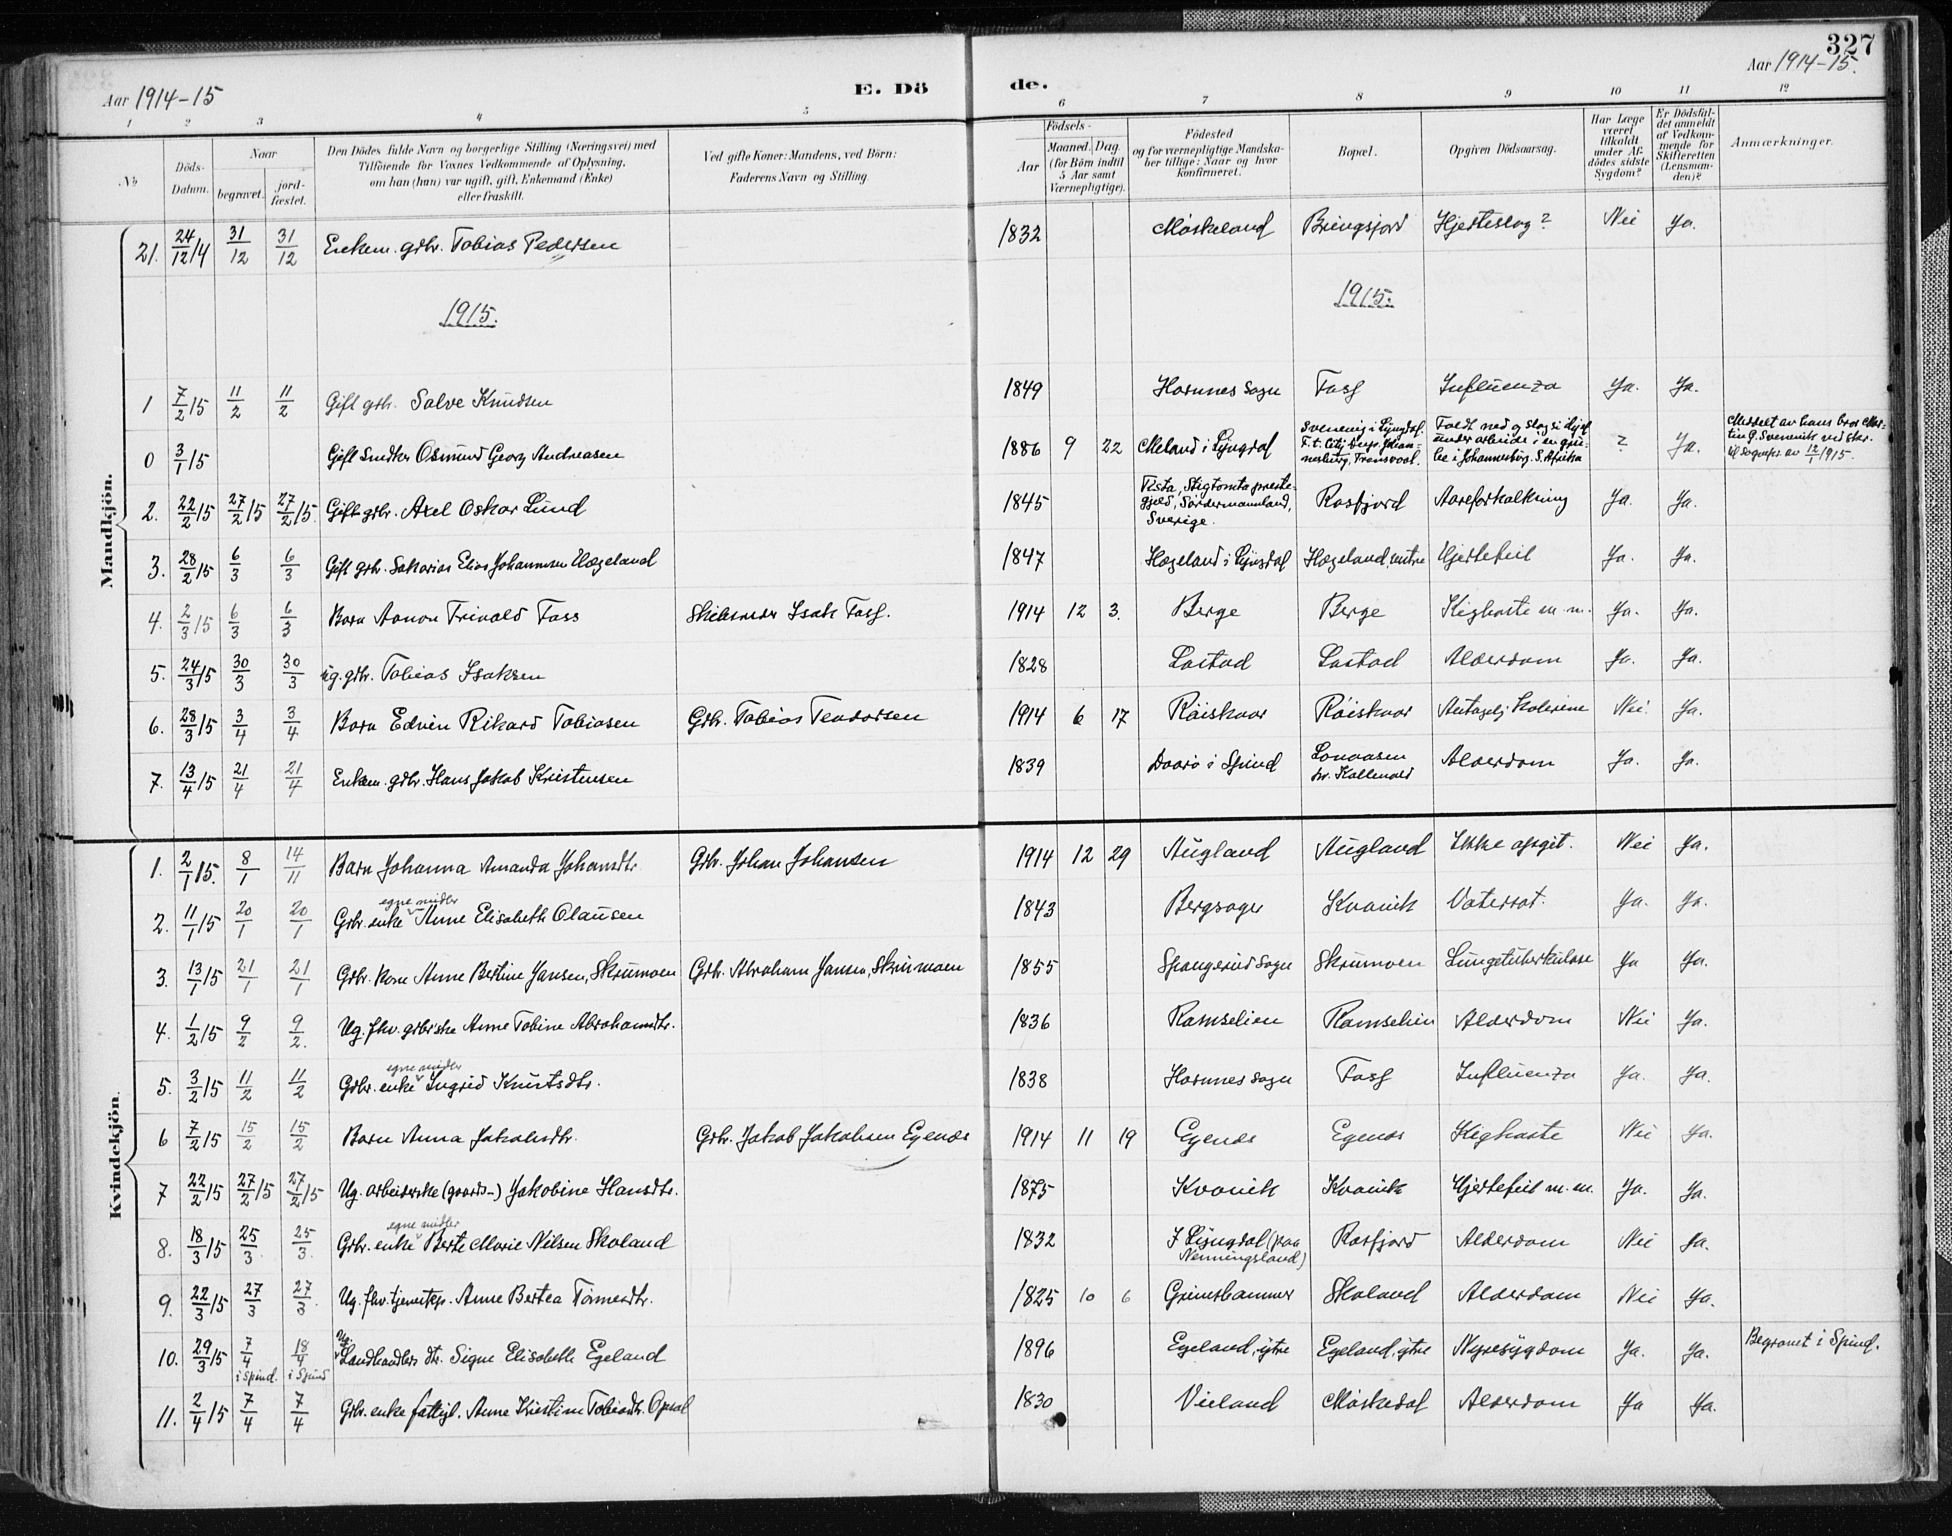 327
Aar 1914-15
E. Dö
de.
Aar 1914-15.
1 2 3 4 5 6 7 8 9 10 11 12
№
Döds-
Datum.
Naar
begravet.
jord-
fæstet.
Den Dödes fulde Navn og borgerlige Stilling (Næringsvei) med
Tilföiende for Voxnes Vedkommende af Oplysning,
om han (hun) var ugift, gift, Enkemand (Enke)
eller fraskilt.
Ved gifte Koner: Mandens, ved Börn:
Faderens Navn og Stilling
Födsels-
Aar
Maaned. Dag
(for Börn indtil
5 Aar samt
Værnepligtige).
Födested
og for værnepligtige Mandska-
ber tillige: Naar og hvor
konfirmeret.
Bopæl.
Opgiven Dödsaarsag.
Har Læge
været
tilkaldt
under Af-
dödes sidste
Sygdom?
Er Dödsfal-
det anmeldt
af Vedkom-
mende for
Skifteretten
(Lensman-
den)?
Anmærkninger.
Mandkjön.
21. 24/12/14 31/12 31/12 Enkem. gdbr. Tobias Pedersen 1832 Møskeland Bringsjord Hjerteslag? Nei Ja.
1915. 1915.
1 7/2/15 11/2 11/2 Gift gdbr. Salve Knudsen 1849 Hornnes sogn Fasf Influenza Ja. Ja.
0 3/1/15 Gift Snedker Osmund Georg Andreasen 1886 9 22 Meland i Lyngdal Svenevig i Lyngdal. F.t. City Deep Johan-nesburg, Transvaal. Faldt ned og slog sig ihjel under arbeide i en gru-be i Johannesburg. S. Afrika ? Ja. Meldet av hans bror Mar-tin G. Svenevik ved skr. til sognepr. av 12/1 1915.
2. 22/2/15 27/2/15 27/2/15. Gift gdbr. Axel Oskar Lund 1845 Tista, Stigtomta preste-gjeld, Södermannland, Sverige. Rosfjord Aareforkalkning Ja. Ja.
3. 28/2/15 6/3 6/3 Gift gdbr. Sakarias Elias Johannesen Hægeland 1847 Hægeland i Lyngdal Hægeland, vestre Hjertefeil Ja. Ja.
4. 2/3/15 6/3 6/3 Barn Aanon Trivald Fass Skibsreder Isak Fasf. 1914 12 3. Berge Berge Kighoste m. m. Ja. Ja.
5. 24/3/15 30/3 30/3 ug. gdbr. Tobias Isaksen 1828 Lastad Lastad Alderdom Ja. Ja.
6. 28/3/15 3/4 3/4 Barn Edvin Rikard Tobiasen Gdbr. Tobias Teodorsen 1914 6 17 Röiskaar Röiskaar Antagelig kolerine Nei. Ja.
7. 13/4/15 21/4 21/4 Enkem. gdbr. Hans Jakob Kristensen 1839 Daarø i Spind Lonaasen br. Kallenald Alderdom Ja. Ja.
Kvindekjön.
1. 2/1/15. 8/1 14/11 Barn Johanna Amanda Johansdtr. Gdbr. Johan Johansen 1914 12 29 Augland Augland Ikke opgit. Nei Ja.
egne midler
2. 11/1/15 20/1 20/1 Gdbr. enke Anne Elisabeth Olausen 1843 Bergsager Kvavik Vatersot. Ja. Ja.
3. 13/1/15 21/1 21/1 Gdbr. kone Anne Bertine Jansen, Skrumoen Gdbr. Abraham Jansen, Skrumoen 1855 Spangereid sogn Skrumoen Lungetuberkulose Ja Ja.
4. 1/2/15 9/2 9/2. Ug. fhv. gdbrske Anne Tobine Abrahamsdtr. 1836 Ramselien Ramselien Alderdom Nei Ja.
egne midler
5. 3/2/15 11/2 11/2 Gdbr. enke Ingrid Knutsdtr. 1838 Hornnes sogn Fasf Influenza Ja. Ja.
6 7/2/15 15/2 15/2 Barn Anna Jakobsdtr. Gdbr. Jakob Jakobsen Egenæs 1914 11 19 Egenæs Egenæs Kighoste Nei Ja.
7 22/2/15 27/2/15 27/2/15 Ug. arbeiderske (gaards-) Jakobine Hansdtr. 1875 Kvavik Kvavik Hjertefeil m. m. Ja. Ja.
egne midler
8. 18/3/15 25/3. 25/3. Gdbr. enke Berte Marie Nilsen Skoland 1832 I Lyngdal (paa Nenningsland) Rosfjord Alderdom Nei Ja.
9. 22/3/15 27/3 27/3. Ug. fhv. tjenestep. Anne Bertea Tørresdtr. 1825 10 6 Grimshammer Skoland Alderdom Nei Ja.
10. 29/3/15 7/4 i Spind. 18/4 i Spind Ug. Landhandlers dtr. Signe Elisabeth Egeland 1896 Egeland, ytre Egeland, ytre Nyresygdom Ja. Ja. Begravet i Spind.
11. 2/4/15 7/4 7/4 Gdbr. enke fattigl. Anne Kristine Tobiasdtr. Opsal 1830 Vieland Møskedal Alderdom Ja Ja.